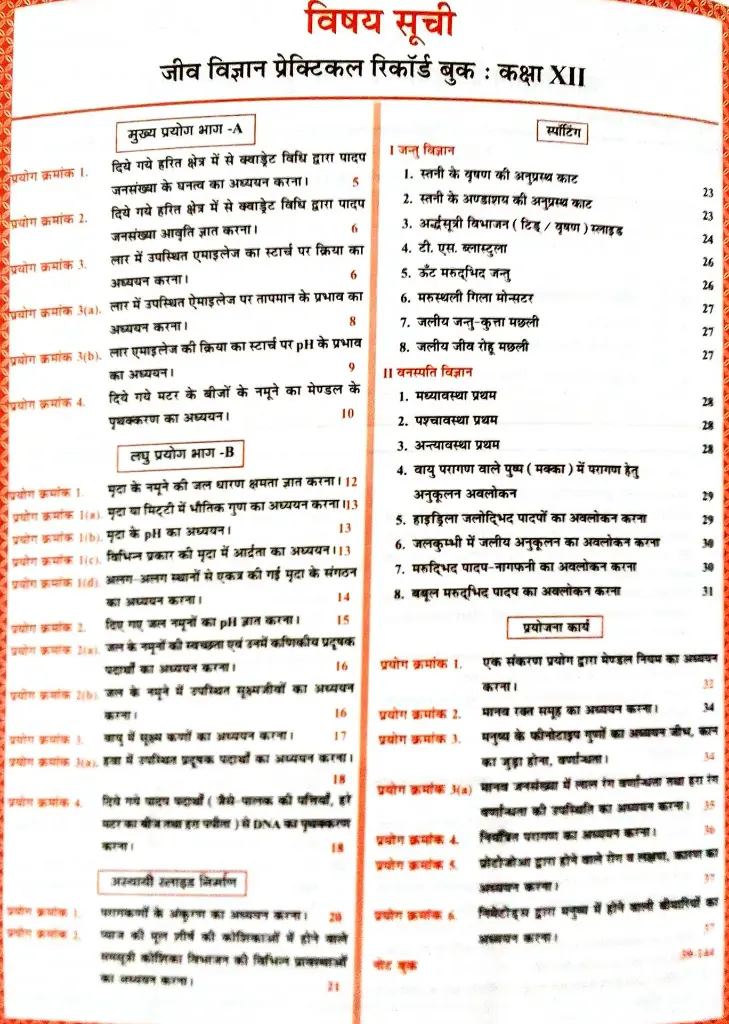 विषय सूची
जीव विज्ञान प्रेक्टिकल रिकॉर्ड बुक : कक्षा XII
मुख्य प्रयोग भाग -A
प्रयोग क्रमांक 1. दिये गये हरित क्षेत्र में से क्वाड्रेट विधि द्वारा पादप
जनसंख्या के घनत्व का अध्ययन करना। 5
प्रयोग क्रमांक 2. दिये गये हरित क्षेत्र में से क्वाड्रेट विधि द्वारा पादप
जनसंख्या आवृति ज्ञात करना। 6
प्रयोग क्रमांक 3. लार में उपस्थित एमाइलेज का स्टार्च पर क्रिया का
अध्ययन करना। 6
प्रयोग क्रमांक 3(a). लार में उपस्थित ऐमाइलेज पर तापमान के प्रभाव का
अध्ययन करना। 8
प्रयोग क्रमांक 3(b). लार एमाइलेज की क्रिया का स्टार्च पर pH के प्रभाव
का अध्ययन। 9
प्रयोग क्रमांक 4. दिये गये मटर के बीजों के नमूने का मेण्डल के
पृथक्करण का अध्ययन। 10
लघु प्रयोग भाग -B
प्रयोग क्रमांक 1. मृदा के नमूने की जल धारण क्षमता ज्ञात करना। 12
प्रयोग क्रमांक 1(a). मृदा या मिट्टी में भौतिक गुण का अध्ययन करना। 13
प्रयोग क्रमांक 1(b). मृदा के pH का अध्ययन। 13
प्रयोग क्रमांक 1(c). विभिन्न प्रकार की मृदा में आर्द्रता का अध्ययन। 13
प्रयोग क्रमांक 1(d). अलग-अलग स्थानों से एकत्र की गई मृदा के संगठन
का अध्ययन करना। 14
प्रयोग क्रमांक 2. दिए गए जल नमूनों का pH ज्ञात करना। 15
प्रयोग क्रमांक 2(a). जल के नमूनों की स्वच्छता एवं उनमें कणिकीय प्रदूषक
पदार्थों का अध्ययन करना। 16
प्रयोग क्रमांक 2(b). जल के नमूने में उपस्थित सूक्ष्मजीवों का अध्ययन
करना। 16
प्रयोग क्रमांक 3. वायु में सूक्ष्म कणों का अध्ययन करना। 17
प्रयोग क्रमांक 3(a). हवा में उपस्थित प्रदूषक पदार्थों का अध्ययन करना।
18
प्रयोग क्रमांक 4. दिये गये पादप पदार्थों ( जैसे-पालक की पत्तियाँ, हरे
मटर का बीज तथा हरा पपीता ) से DNA का पृथक्करण
करना। 18
अस्थायी स्लाइड निर्माण
प्रयोग क्रमांक 1. परागकणों के अंकुरण का अध्ययन करना। 20
प्रयोग क्रमांक 2. प्याज की मूल शीर्ष की कोशिकाओं में होने वाले
समसूत्री कोशिका विभाजन की विभिन्न प्रावस्थाओं
का अध्ययन करना। 21
स्पॉटिंग
I जन्तु विज्ञान
1. स्तनी के वृषण की अनुप्रस्थ काट 23
2. स्तनी के अण्डाशय की अनुप्रस्थ काट 23
3. अर्द्धसूत्री विभाजन ( टिड्ड / वृषण ) स्लाइड 24
4. टी. एस. ब्लास्टुला 26
5. ऊँट मरुद्भिद जन्तु 26
6. मरुस्थली गिला मोन्सटर 27
7. जलीय जन्तु-कुत्ता मछली 27
8. जलीय जीव रोहू मछली 27
II वनस्पति विज्ञान
1. मध्यावस्था प्रथम 28
2. पश्चावस्था प्रथम 28
3. अन्त्यावस्था प्रथम 28
4. वायु परागण वाले पुष्प ( मक्का ) में परागण हेतु
अनुकूलन अवलोकन 29
5. हाइड्रिला जलोद्भिद पादपों का अवलोकन करना 29
6. जलकुम्भी में जलीय अनुकूलन का अवलोकन करना 30
7. मरुद्भिद पादप-नागफनी का अवलोकन करना 30
8. बबूल मरुद्भिद पादप का अवलोकन करना 31
प्रयोजना कार्य
प्रयोग क्रमांक 1. एक संकरण प्रयोग द्वारा मेण्डल नियम का अध्ययन
करना। 32
प्रयोग क्रमांक 2. मानव रक्त समूह का अध्ययन करना। 34
प्रयोग क्रमांक 3. मनुष्य के फीनोटाइप गुणों का अध्ययन जीभ, कान
का जुड़ा होना, वर्णान्धता। 34
प्रयोग क्रमांक 3(a) मानव जनसंख्या में लाल रंग वर्णान्धता तथा हरा रंग
वर्णान्धता की उपस्थिति का अध्ययन करना। 35
प्रयोग क्रमांक 4. नियंत्रित परागण का अध्ययन करना। 36
प्रयोग क्रमांक 5. प्रोटोजोआ द्वारा होने वाले रोग व लक्षण, कारण का
अध्ययन करना। 37
प्रयोग क्रमांक 6. निमेटोड्स द्वारा मनुष्य में होने वाली बीमारियों का
अध्ययन करना। 37
नोट बुक 39-144